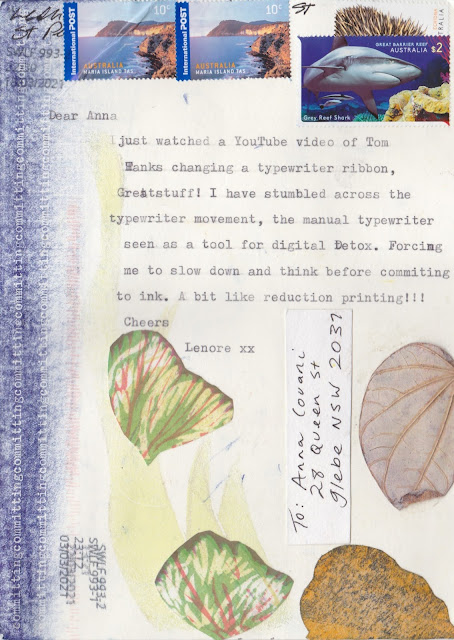 INTERNATIONAL POST
10c
AUSTRALIA
MARIA ISLAND TAS
INTERNATIONAL POST
10c
AUSTRALIA
MARIA ISLAND TAS
St
AUSTRALIA
GREAT BARRIER REEF
AUSTRALIA $2
Grey Reef Shark
Dear Anna
just watched a YouTube video of Tom
Hanks changing a typewriter ribbon,
Greatstuff! I have stumbled across the
typewriter movement, the manual typewriter
seen as a tool for digital Detox. Forcing
me to slow down and think before commiting
to ink. A bit like reduction printing!!!
Cheers
Lenore xx
To: Anna Couani
28 Queen St
Glebe NSW 2037
committingcommittingcommittingcommittingcommittingcommitting
SWLF993-2
23:12
03/03/2021